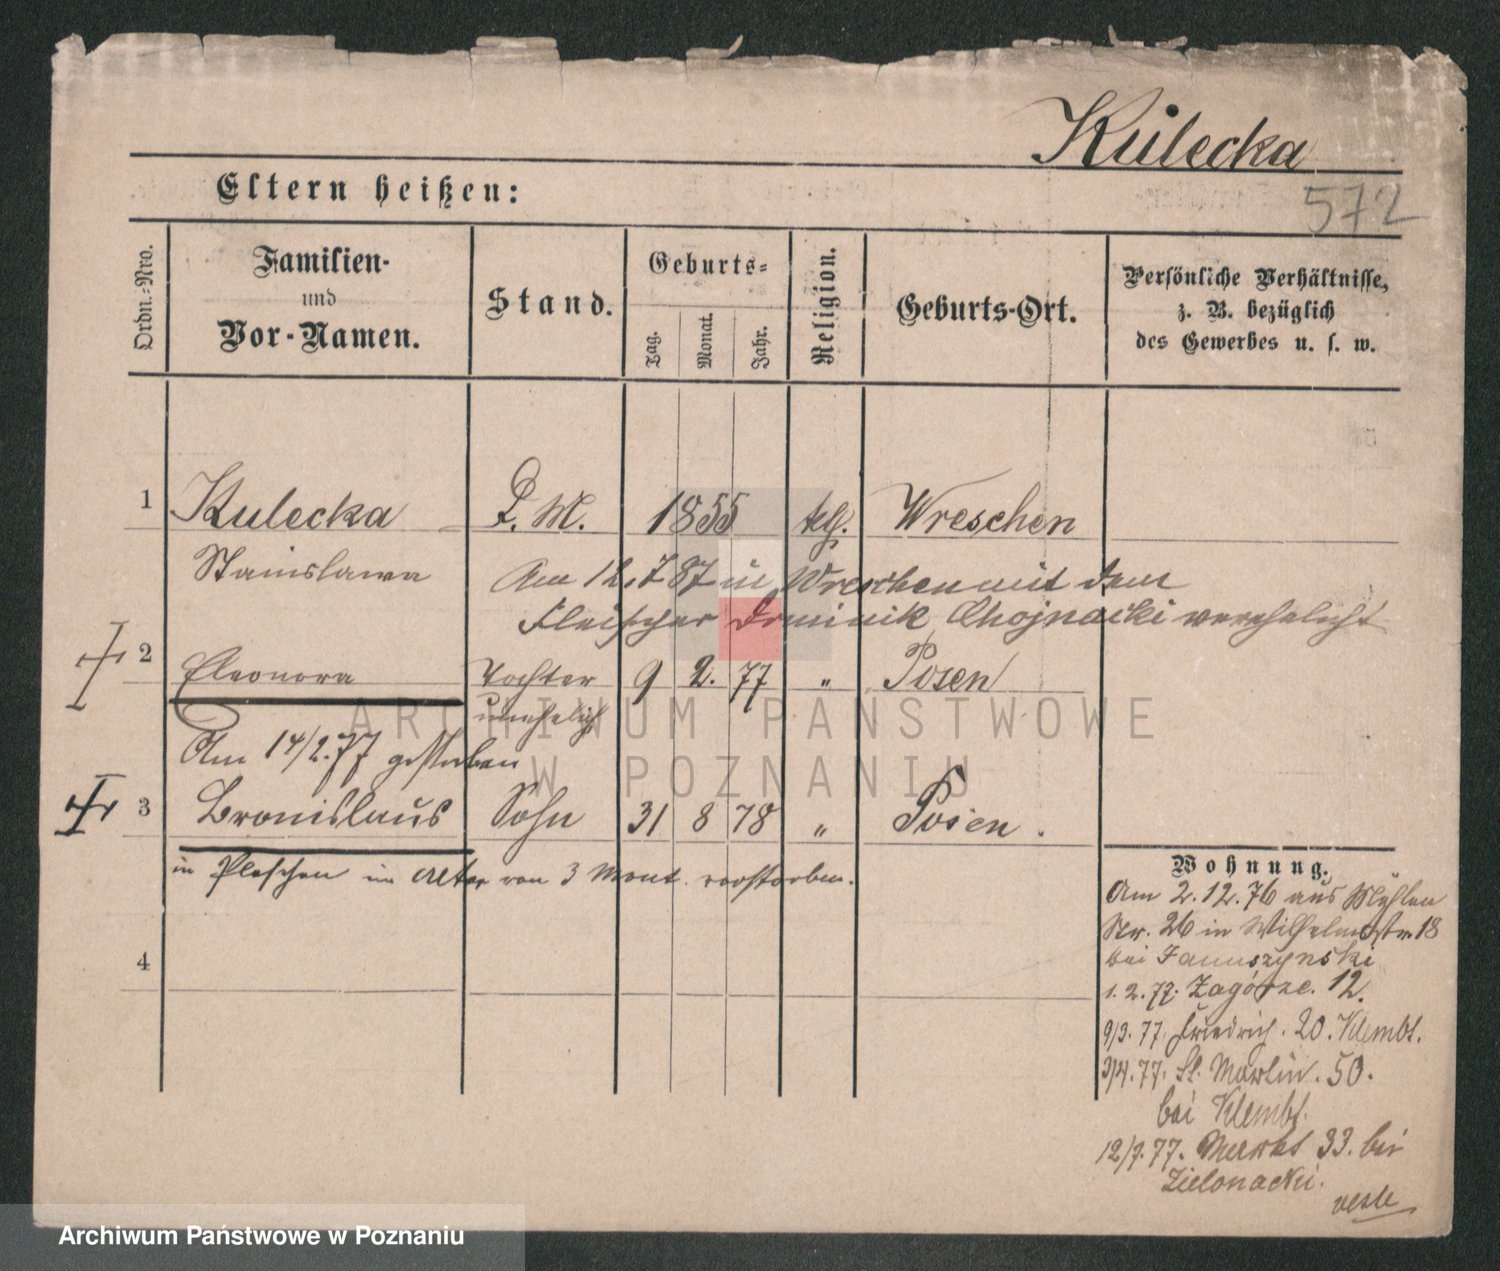 Kulecka
572
Eltern heißen:
Ordn.-Nro.
Familien-
und
Vor-Namen.
Stand.
Geburts-
Tag.
Monat.
Jahr.
Religion.
Geburts-Ort.
Persönliche Verhältnisse,
z. B. bezüglich
des Gewerbes u. s. w.
1 Kulecka D. M. 1855 kth. Wreschen
Stanislawa
Am 12.7 87 in Wreschen mit dem
Fleischer Dominik Chojnacki verehelicht
2 Eleonora Tochter 9 2. 77 " Posen
unehelich
Am 14/2.77 gestorben
3 Bronislaus Sohn 31 8 78 " Posen.
in Pleschen im Alter von 3 Mont. verstorben.
4
Wohnung.
Am 2.12.76 aus Mühlen
Str. 26 in Wilhelmstr. 18
bei Januszynski
1.2.77. Zagórze. 12.
9/3.77. Friedrich. 20. Klembt.
3/4.77. St. Martin. 50.
bei Klembt.
12/7.77. Markt 33. bei
Zielonacki.
ARCHIWUM PAŃSTWOWE
W POZNANIU
Archiwum Państwowe w Poznaniu